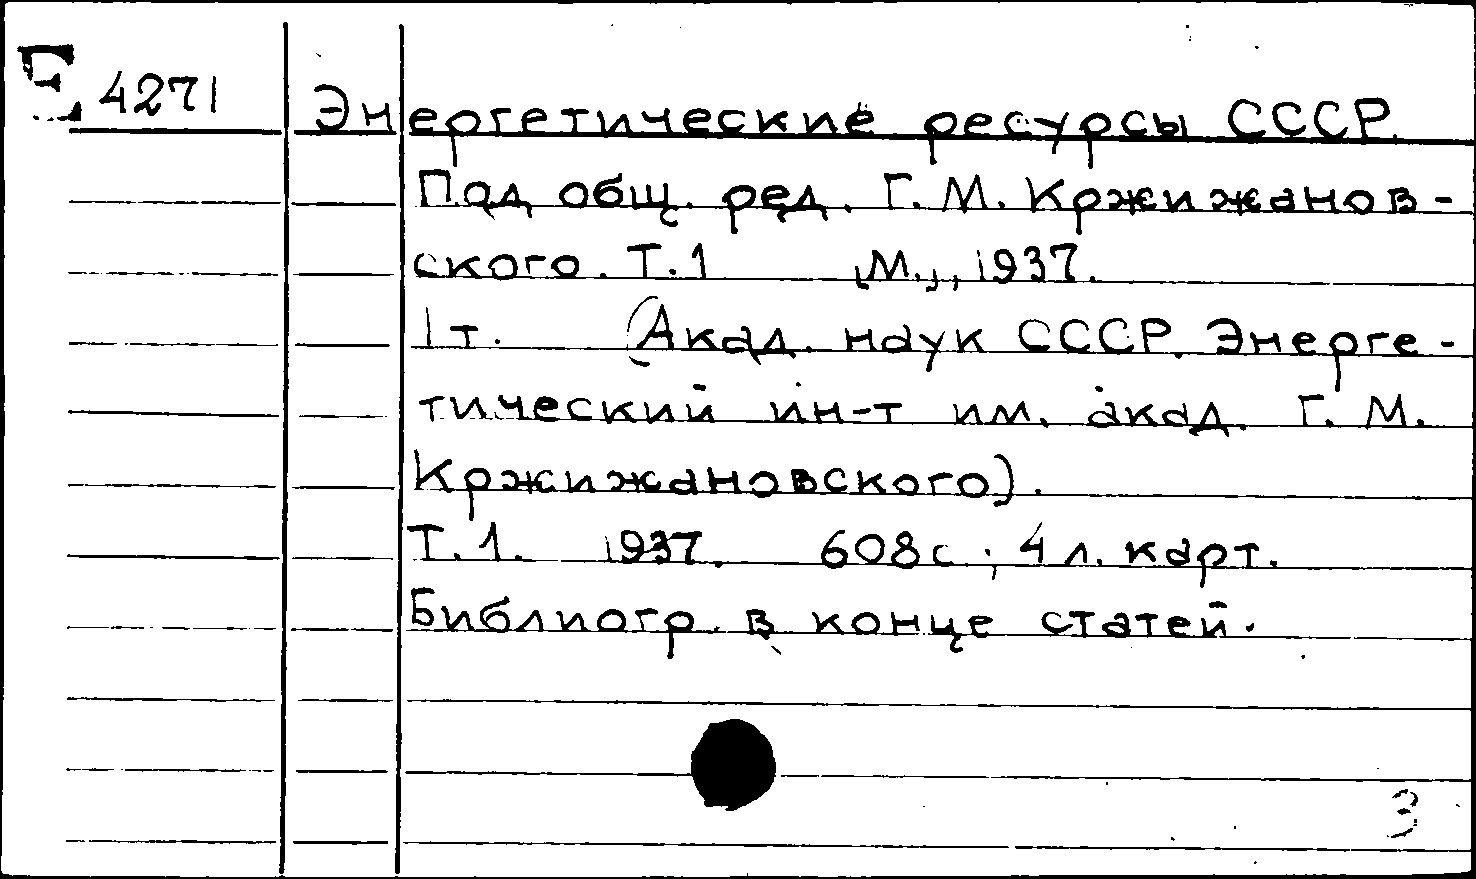 Е 4271
Энергетические ресурсы СССР.
Под общ. ред. Г. М. Кржижанов-
ского. Т. 1 М., 1937.
1 т. (Акад. наук СССР. Энерге-
тический ин-т им. акад. Г. М.
Кржижановского).
Т. 1. 1937. 608 с.; 4 л. карт.
Библиогр. в конце статей.
3